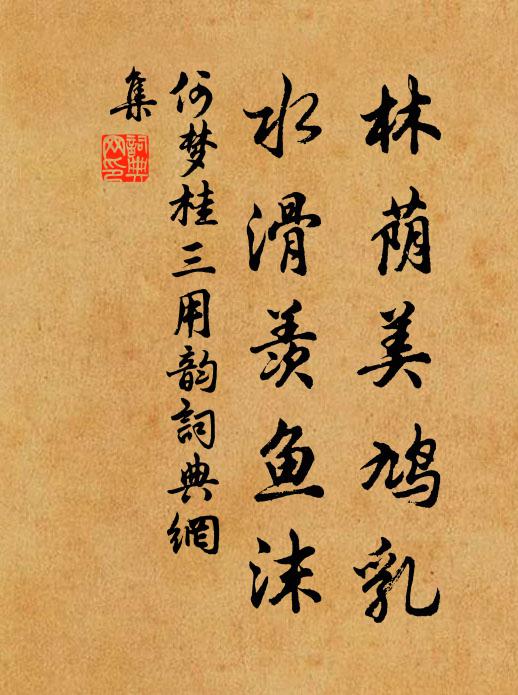 林荫美鸠乳
水滑羡鱼沫
何梦桂三用韵詞典網
集
詞典网印